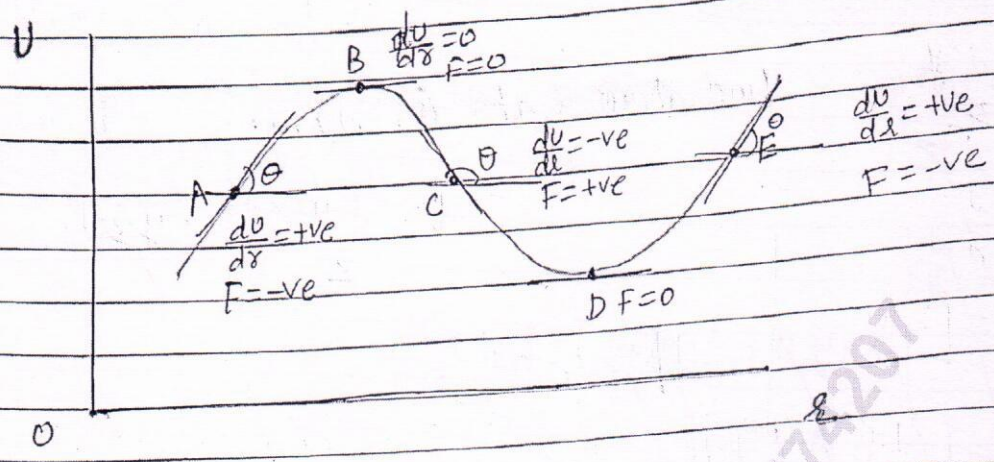 U
dU/dr = 0
B F=0
A θ
dU/dr = +ve
F = -ve
C θ
dU/dr = -ve
F = +ve
D F=0
θ
E
dU/dr = +ve
F = -ve
O
r
74207